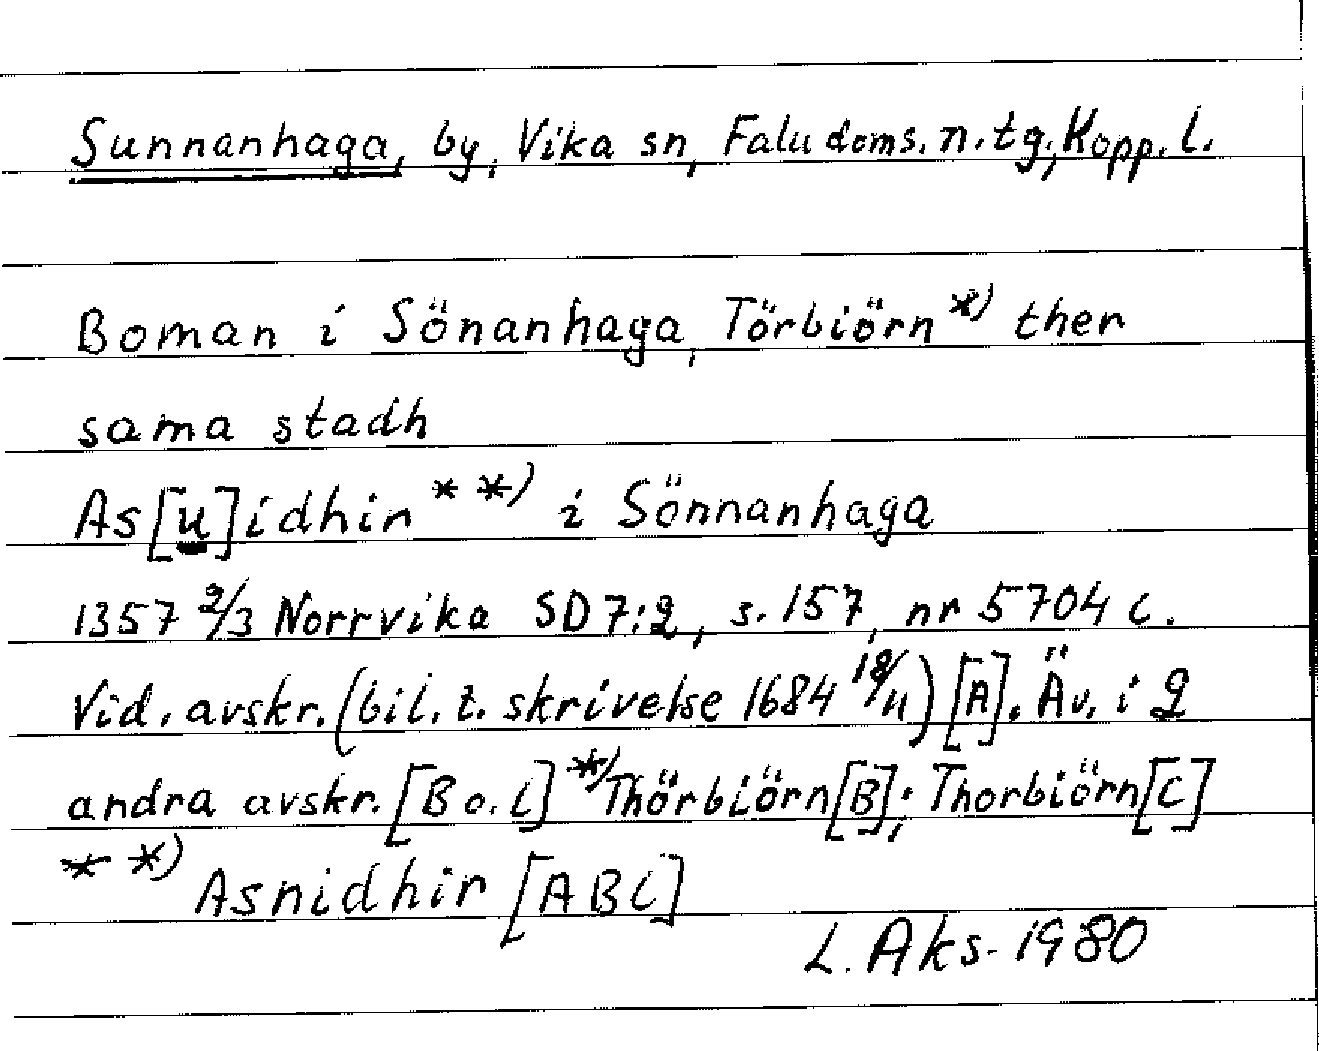 Sunnanhaga, by, Vika sn, Falu doms. n. tg, Kopp. l.
Boman i Sönanhaga, Törbiörn *) ther
sama stadh
As[u]idhin **) i Sönnanhaga
1357 2/3 Norrvika SD 7:2, s. 157, nr 5704 c.
Vid. avskr. (bil. t. skrivelse 1684 18/11) [A]. Äv. i 2
andra avskr. [B o. C] *) Thörbiörn [B]; Thorbiörn [C]
**) Asnidhir [ABC]
L. Aks. 1980